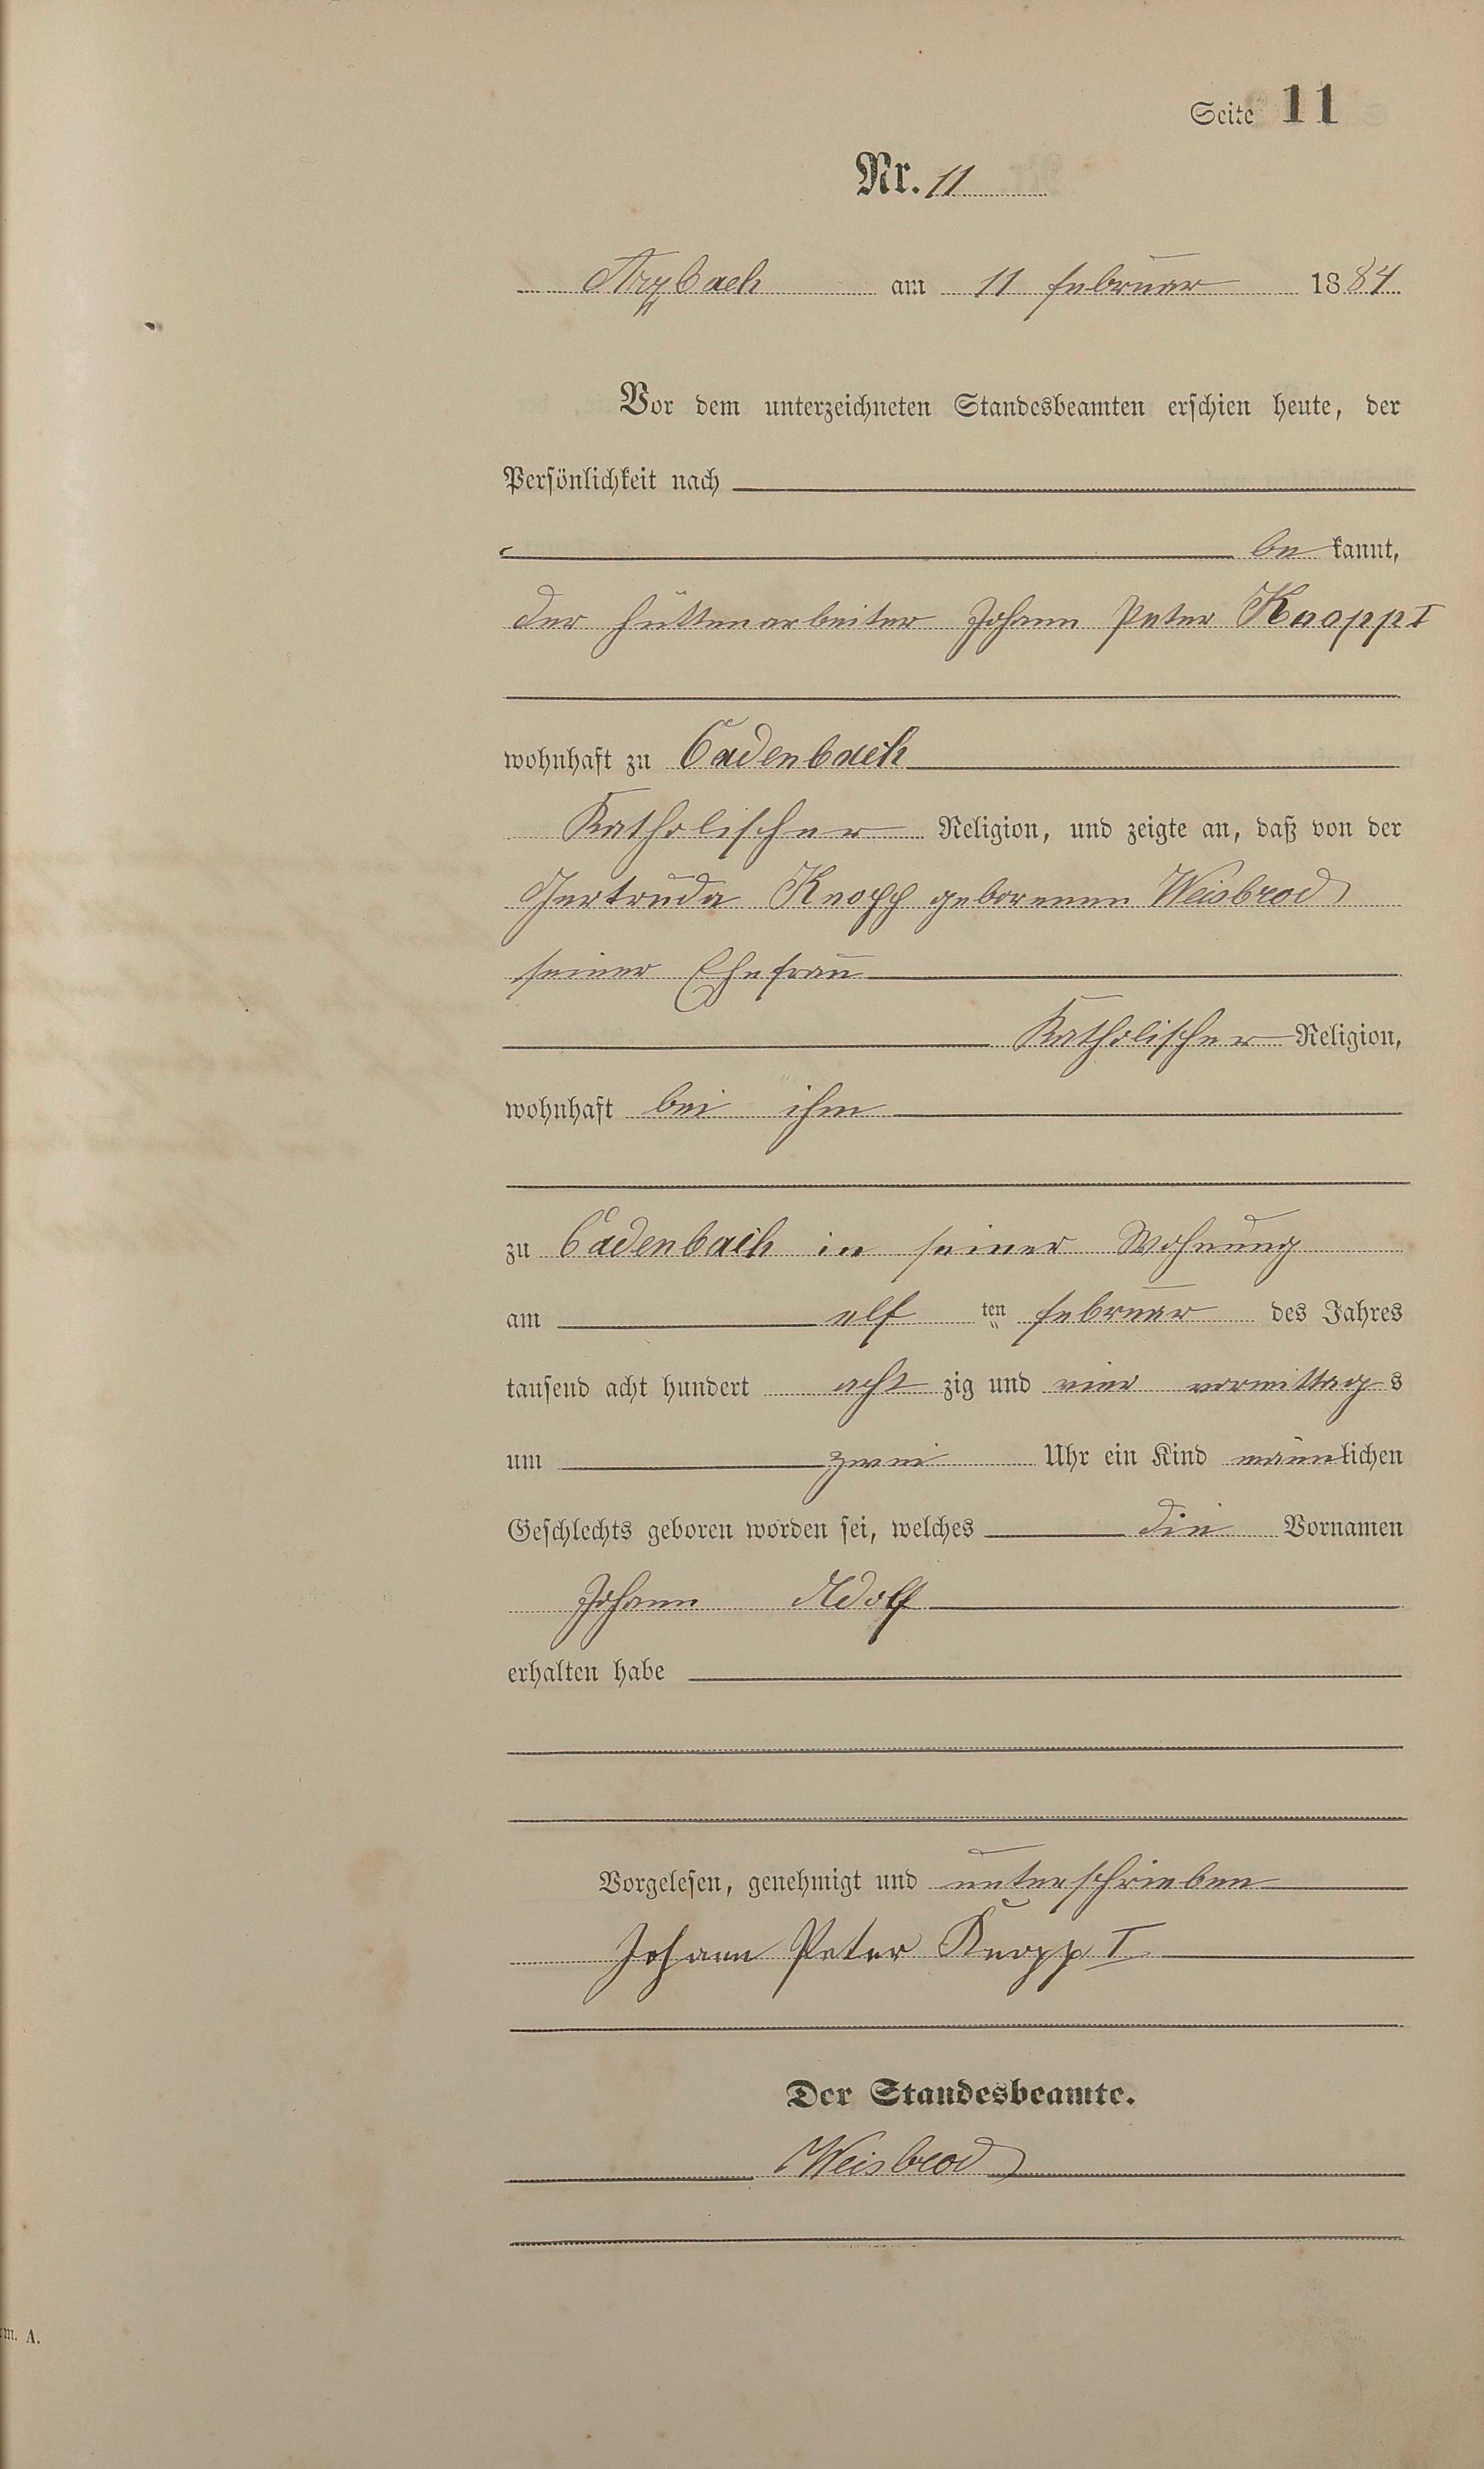 Seite 11
Nr. 11
Arzbach am 11 februar 1884
Vor dem unterzeichneten Standesbeamten erschien heute, der
Persönlichkeit nach
be kannt,
der Hüttenarbeiter Johann Peter Knopp I
wohnhaft zu Cadenbach
Katholischer Religion, und zeigte an, daß von der
Gertruda Knopp geborenen Weisbrod
seiner Ehefrau
Katholischer Religion,
wohnhaft bei ihm
zu Cadenbach in seiner Wohnung
am elf ten februar des Jahres
tausend acht hundert acht zig und vier vormittag s
um zwei Uhr ein Kind männlichen
Geschlechts geboren worden sei, welches die Vornamen
Johann Adolf
erhalten habe
Vorgelesen, genehmigt und unterschrieben
Johann Peter Knopp I
Der Standesbeamte.
Weisbrod
m. A.